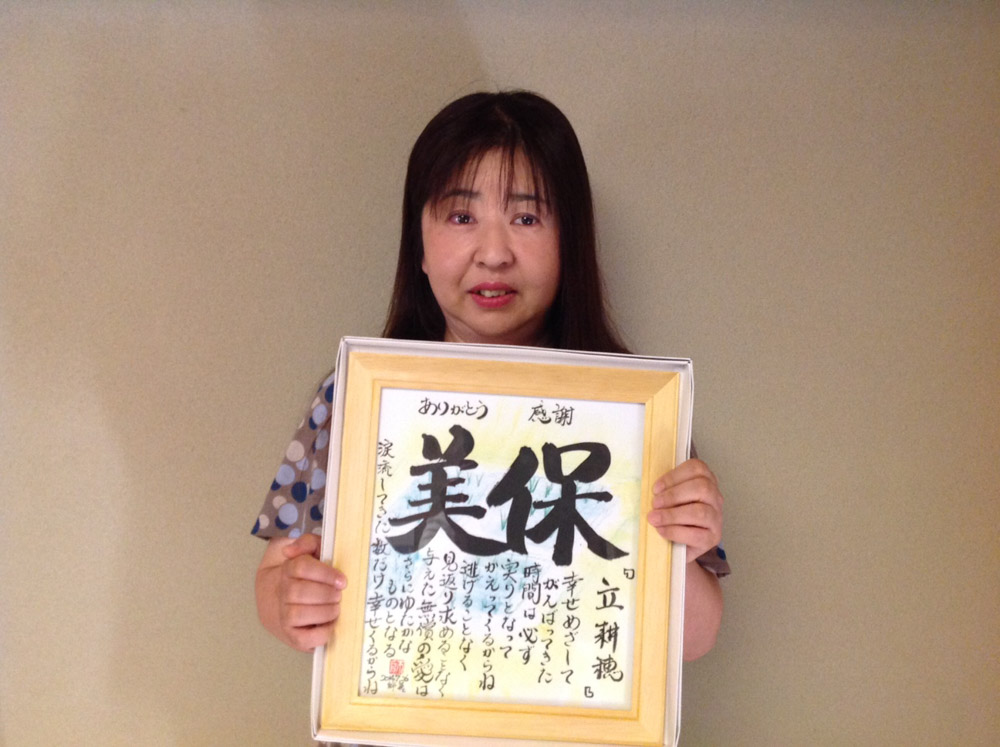 ありがとう　感謝
美保
「立耕穂」
幸せめざして
がんばってきた
時間は必ず
実りとなって
かえってくるからね
逃げることなく
見返り求めることなく
与えた無償の愛は
さらにゆたかな
ものとなる
涙流してきた数だけ幸せくるからね